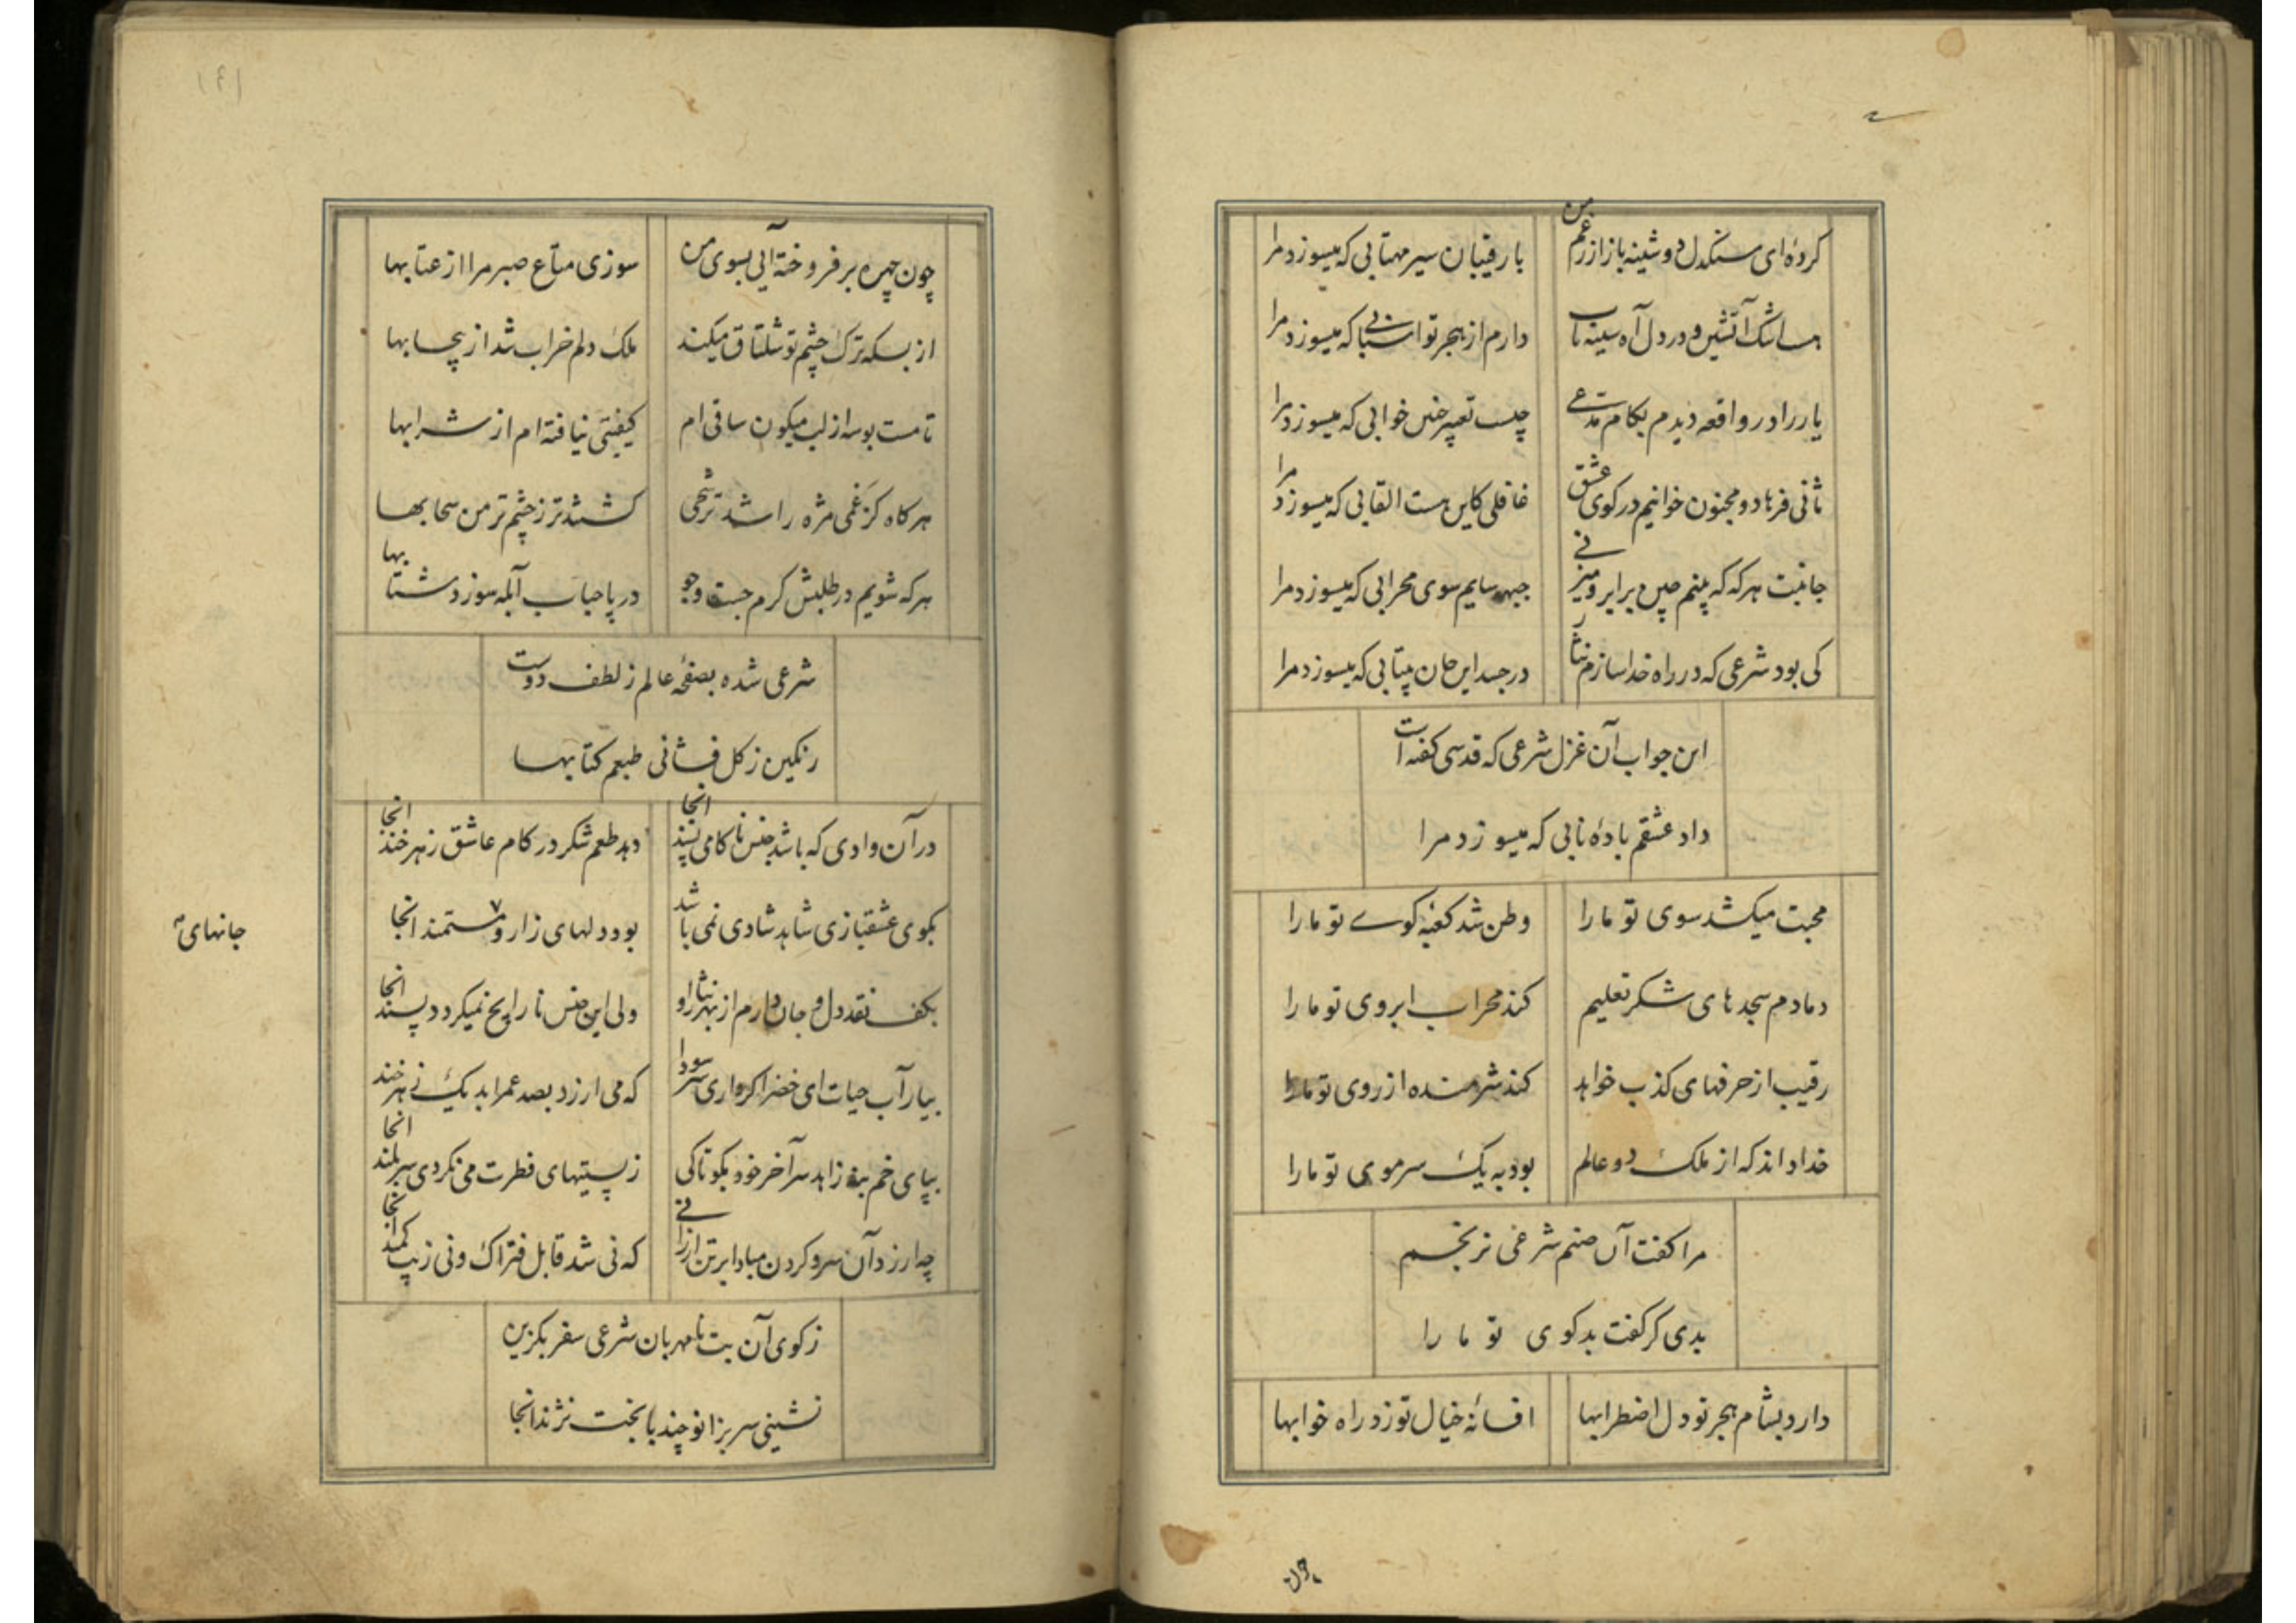 کردهٔ ای سنکدل دوشینه باز از رغم من
با رقیبان سیر مهتابی که میسوزد مرا
اشک آتشین و درد دل آه سینه تاب
دارم از هجر تو اسبابی که میسوزد مرا
یار را در واقعه دیدم بکام مدعی
چیست تعبیر چنین خوابی که میسوزد مرا
ثانی فرهاد و مجنون خوانیم در کوی عشق
غافلی کاین هست القابی که میسوزد مرا
جانبت هرکه که بینم چین بر ابرو میزنی
جبهه سایم سوی محرابی که میسوزد مرا
کی بود شرعی که در راه خدا سازم نثار
در جسد این جان بیتابی که میسوزد مرا
این جواب آن غزل شرعی که قدسی کفته است
داد عشقم بادهٔ نابی که میسوزد مرا
محبت میکشد سوی تو ما را
وطن شد کعبهٔ کوی تو ما را
دمادم سجدهای شکر تعلیم
کند محراب ابروی تو ما را
رقیب از حرفهای کذب خواهد
کند شرمنده از روی تو ما را
خدا داند که از ملک دو عالم
بود به یک سر موی تو ما را
مرا کفت آن صنم شرعی نرنجم
بدی کر کفت بدکوی تو ما را
دارد بشام هجر تو دل اضطرابها
افسانهٔ خیال تو زد راه خوابها
چون
چون چهره برفروخته آیی بسوی من
سوزی متاع صبر مرا از عتابها
از بسکه ترک چشم تو شلتاق میکند
ملک دلم خراب شد از بیحسابها
تا مست بوسه از لب میکون ساقی ام
کیفیتی نیافته ام از شرابها
هرکاه کز غمی مژه را شد ترشحی
کشتند تر ز چشم تر من سحابها
هرکه شویم در طلبش کرم جست و جو
در پا حباب آبله سوزد شتابها
شرعی شده بصفحهٔ عالم ز لطف دوست
رنکین ز کل فشانی طبعم کتابها
در آن وادی که باشد جنس ناکامی پسند انجا
دهد طعم شکر در کام عاشق زهرخند انجا
بکوی عشقبازی شاهد شادی نمی باشد
بود دلهای زار و مستمند انجا
جانهای
بکف نقد دل و جان دارم از بهر نثار او
ولی این جنس نارایج نمیکردد پسند انجا
بیار آب حیات ای خضر اکر داری سر سودا
که می ارزد بصد عمر ابد یک زهرخند انجا
بپای خم بنه زاهد سر آخر خود بکو تا کی
ز پستیهای فطرت می نکردی سربلند انجا
چه ارزد آن سر و کردن مبادا بر تن ارزانی
که نی شد قابل فتراک و نی زیب کمند انجا
ز کوی آن بت نامهربان شرعی سفر بکزین
نشینی سر بزانو چند با بخت نژند انجا